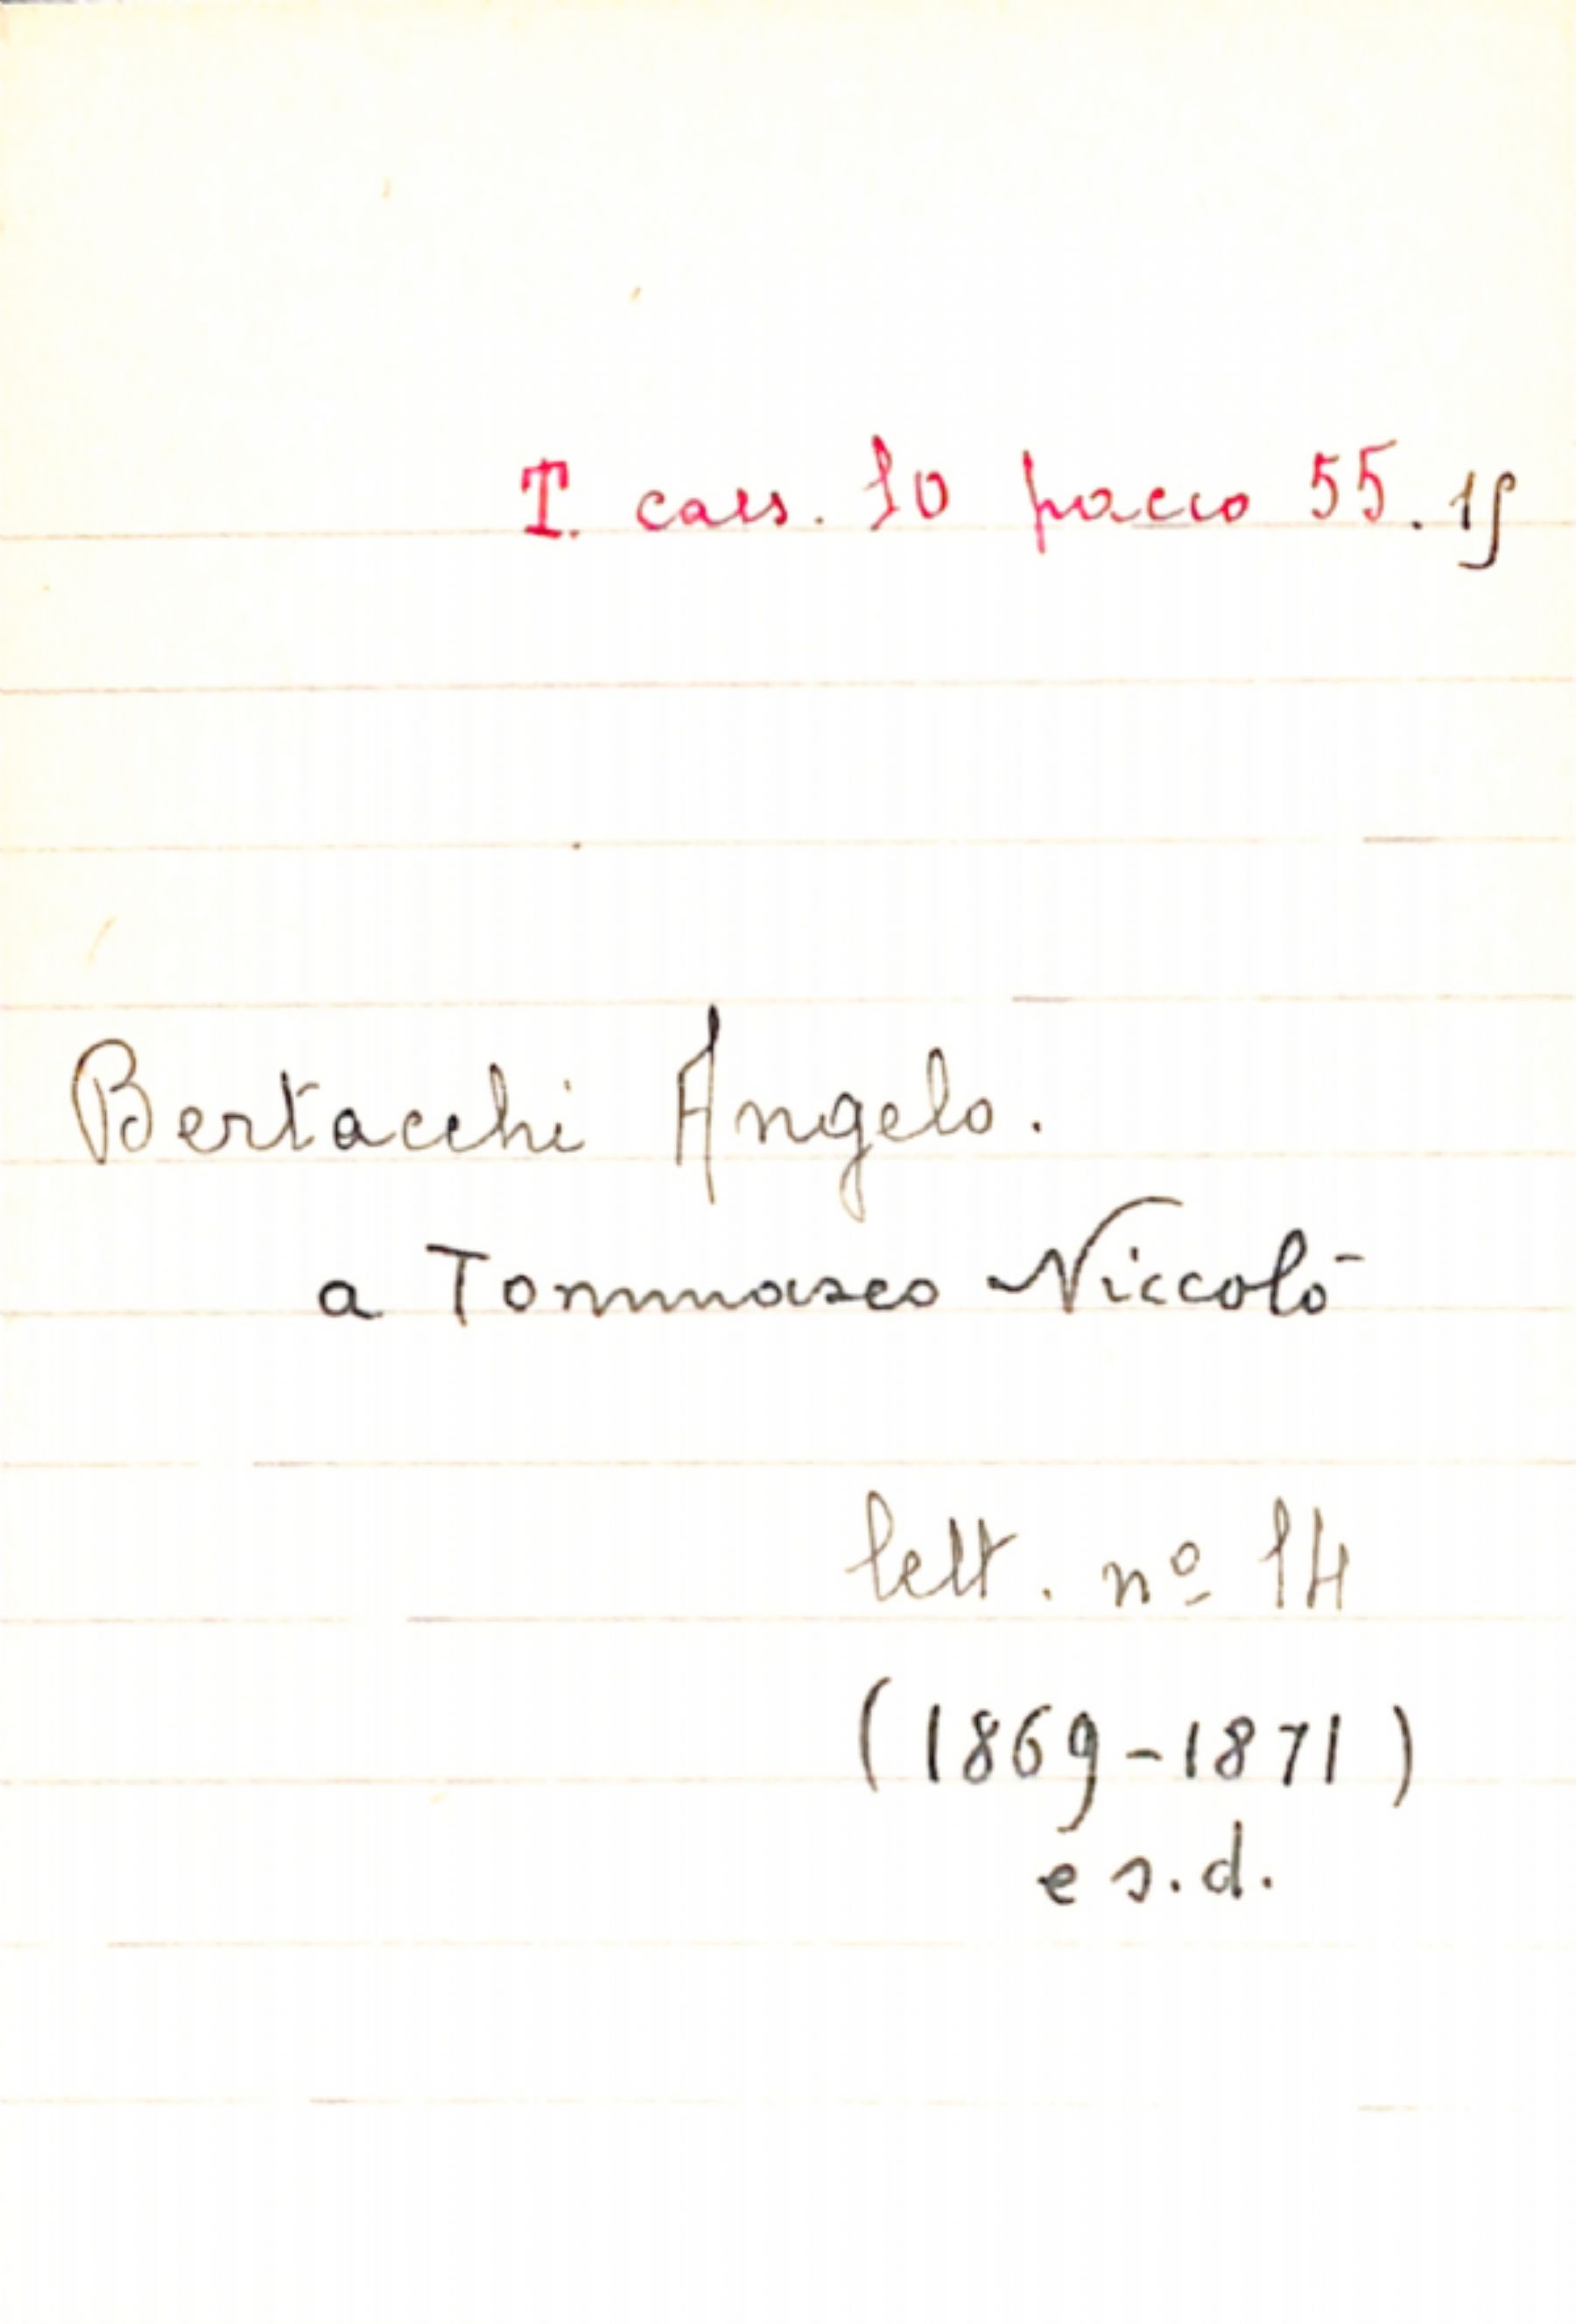 T. cass. 10 pacco 55. 15
Bertacchi Angelo.
a Tommaseo Niccolò
lett. nº 14
(1869-1871)
e s.d.